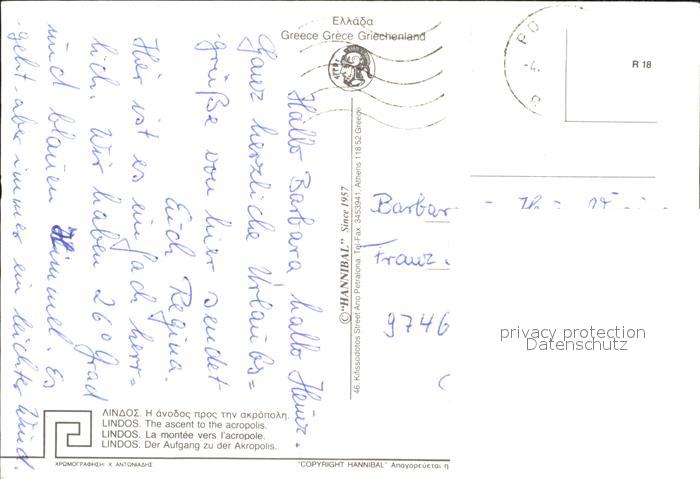 Ελλάδα
Greece Grèce Griechenland
Hallo Barbara, hallo Heinz.
Ganz herzliche Urlaubs=
grüße von hier sendet
Euch Regina.
Hier ist es einfach herr=
lich. Wir haben 26° Grad
und blauen Himmel. Es
geht aber immer ein leichter Wind.
©"HANNIBAL" Since 1957
46, Kifissodotos Street Ano Petralona. Tel-Fax. 3453941, Athens 118 52 Greece
PO
-4.
R 18
Barbar
Franz
9746
privacy protection
Datenschutz
ΛΙΝΔΟΣ. Η άνοδος προς την ακρόπολη.
LINDOS. The ascent to the acropolis.
LINDOS. La montée vers l'acropole.
LINDOS. Der Aufgang zu der Akropolis.
ΧΡΩΜΟΓΡΑΦΗΣΗ: Χ ΑΝΤΩΝΙΑΔΗΣ
"COPYRIGHT HANNIBAL" Απαγορεύεται η